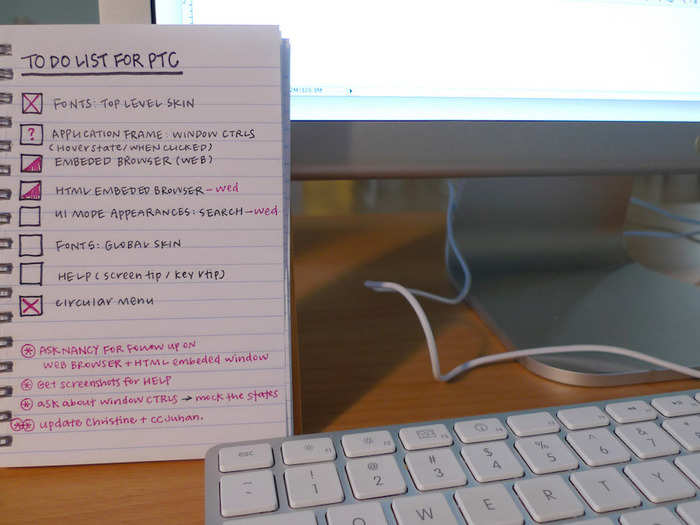 TO DO LIST FOR PTC
FONTS: TOP LEVEL SKIN
? APPLICATION FRAME: WINDOW CTRLS
(Hover state/WHEN CLICKED)
EMBEDED BROWSER (WEB)
HTML EMBEDED BROWSER - wed
UI MODE APPEARANCES: SEARCH - wed
FONTS: GLOBAL SKIN
HELP (screen tip / key tip)
circular menu
* ASK NANCY FOR FOLLOW UP ON
WEB BROWSER + HTML embeded window
* Get screenshots for HELP
* ask about WINDOW CTRLS → mock the states
** update Christine + CC Juhan.
esc
~ ! @ # $ % ^ &
` 1 2 3 4 5 6 7
Q W E R T Y